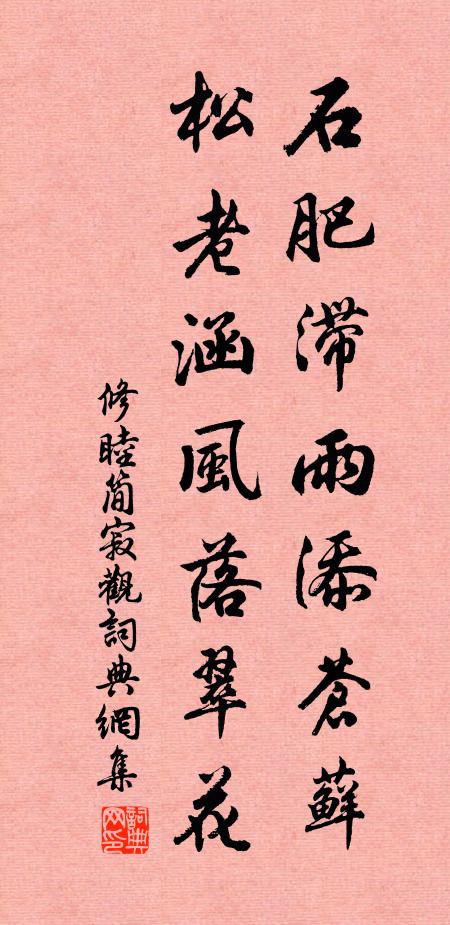 石肥滯雨添蒼蘚
松老涵風落翠花
修睦簡寂觀詞典網集
詞典网印